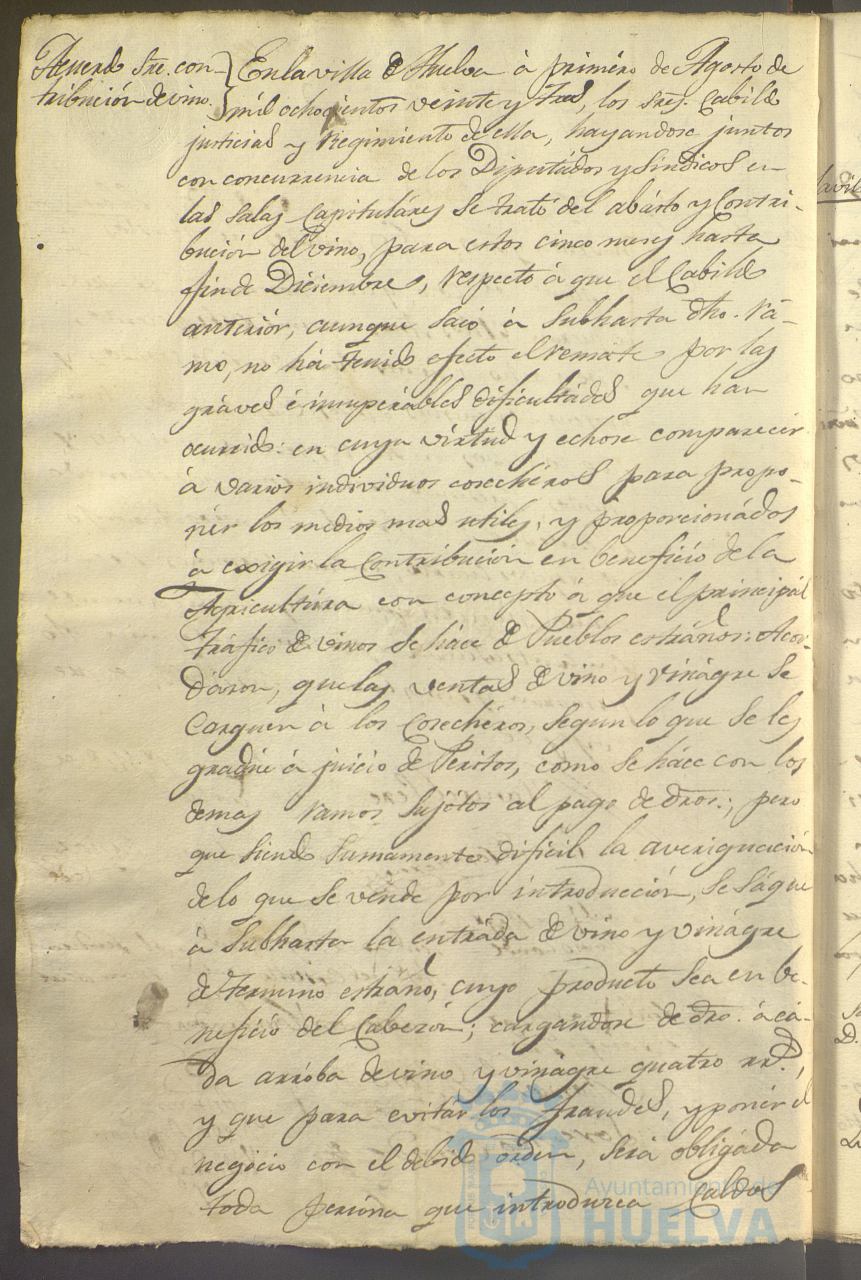 Acuerdo Sre. con-
tribución de vino.
En la villa de Huelva à primero de Agosto de
mil ochocientos veinte y tres, los Sres. Cabildo
justicia y regimiento de ella, hayandose juntos
con concurrencia de los Diputados y Sindicos en
las Salas Capitulares se trató del abasto y Contri-
bución del vino, para estos cinco meses hasta
fin de Diciembre, respecto á que el Cabildo
anterior, aunque sacó á Subhasta dho. Ra-
mo, no há tenido efecto el remate por las
graves é insuperables dificultades que han
ocurrido: en cuya virtud y echose comparecer
á varios individuos cosecheros para propo-
ner los medios mas utiles, y proporcionados
á exigir la Contribución en beneficio de la
Agricultura con concepto á que el principal
tráfico de vinos se háce de Pueblos estraños: Acor-
daron, que las ventas de vino y vinagre se
Carguen á los Cosecheros, segun lo que se les
gradúe á juicio de Peritos, como se háce con los
demas ramos sujétos al pago de dros.; pero
que siendo sumamente dificil la averiguación
de lo que se vende por introducción, se sáque
á Subhasta la entráda de vino y vinágre
de termino estraño, cuyo producto sea en be-
neficio del Cabezón; cargandose de dro. á cá-
da arróba de vino y vinágre quatro rrs.,
y que para evitár los fraudes, y ponér el
negócio con el debido orden, será obligáda
toda persona que introdurca Caldos
Ayuntamiento de
HUELVA